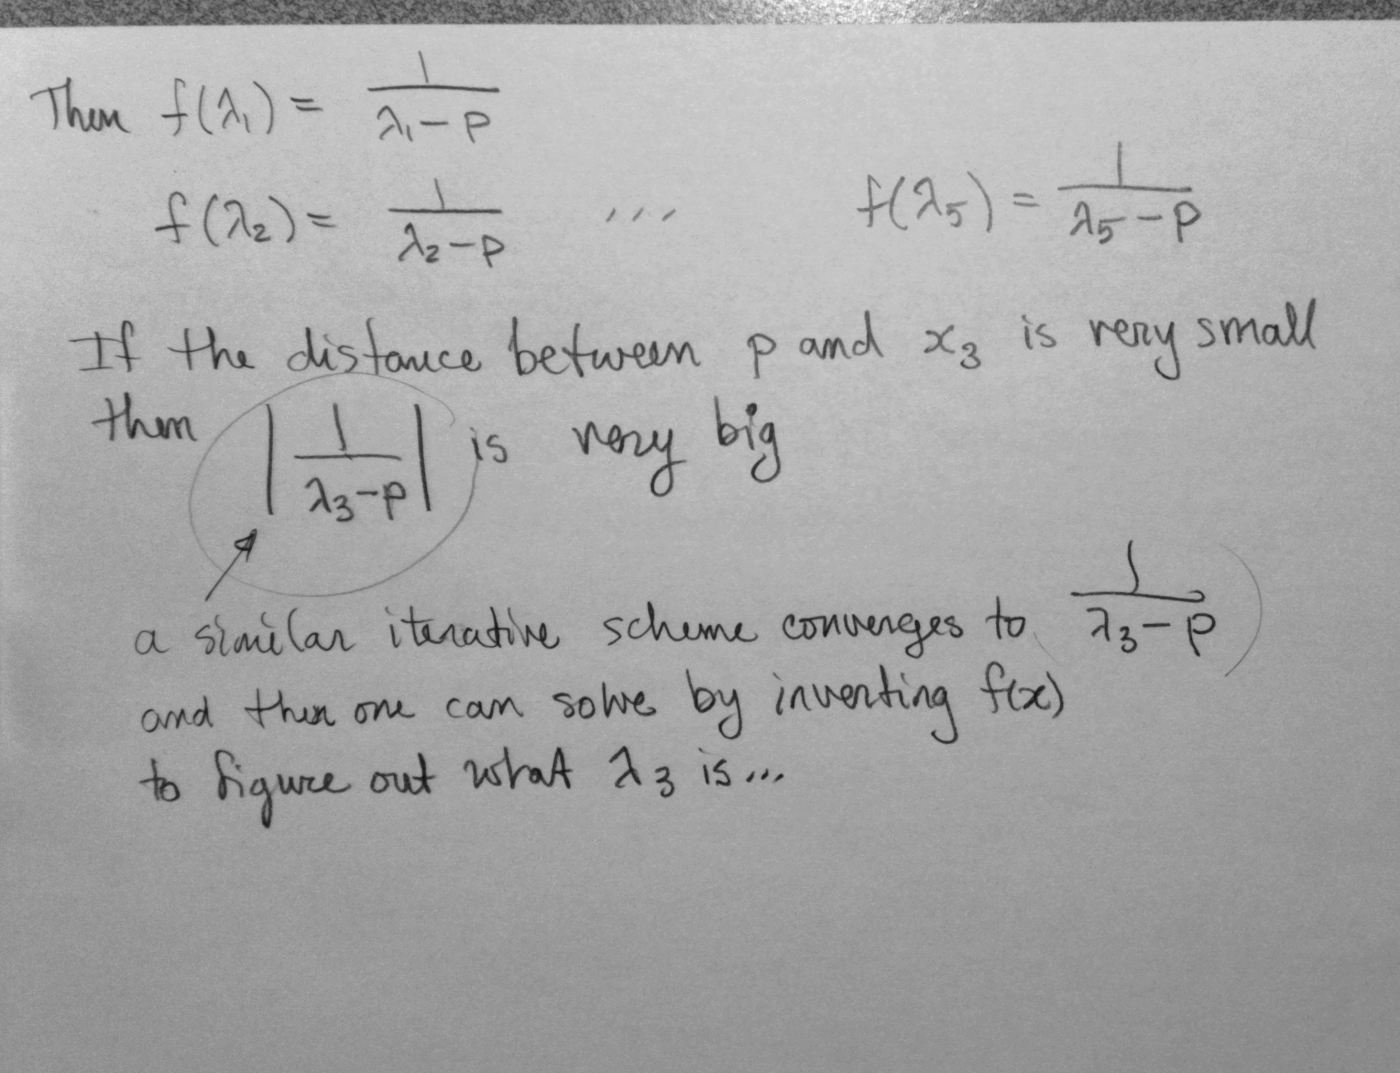 Then f(λ₁) = 1/(λ₁ - p)
f(λ₂) = 1/(λ₂ - p) ... f(λ₅) = 1/(λ₅ - p)
If the distance between p and x₃ is very small
then |1/(λ₃ - p)| is very big
a similar iterative scheme converges to 1/(λ₃ - p)
and then one can solve by inverting f(x)
to figure out what λ₃ is...